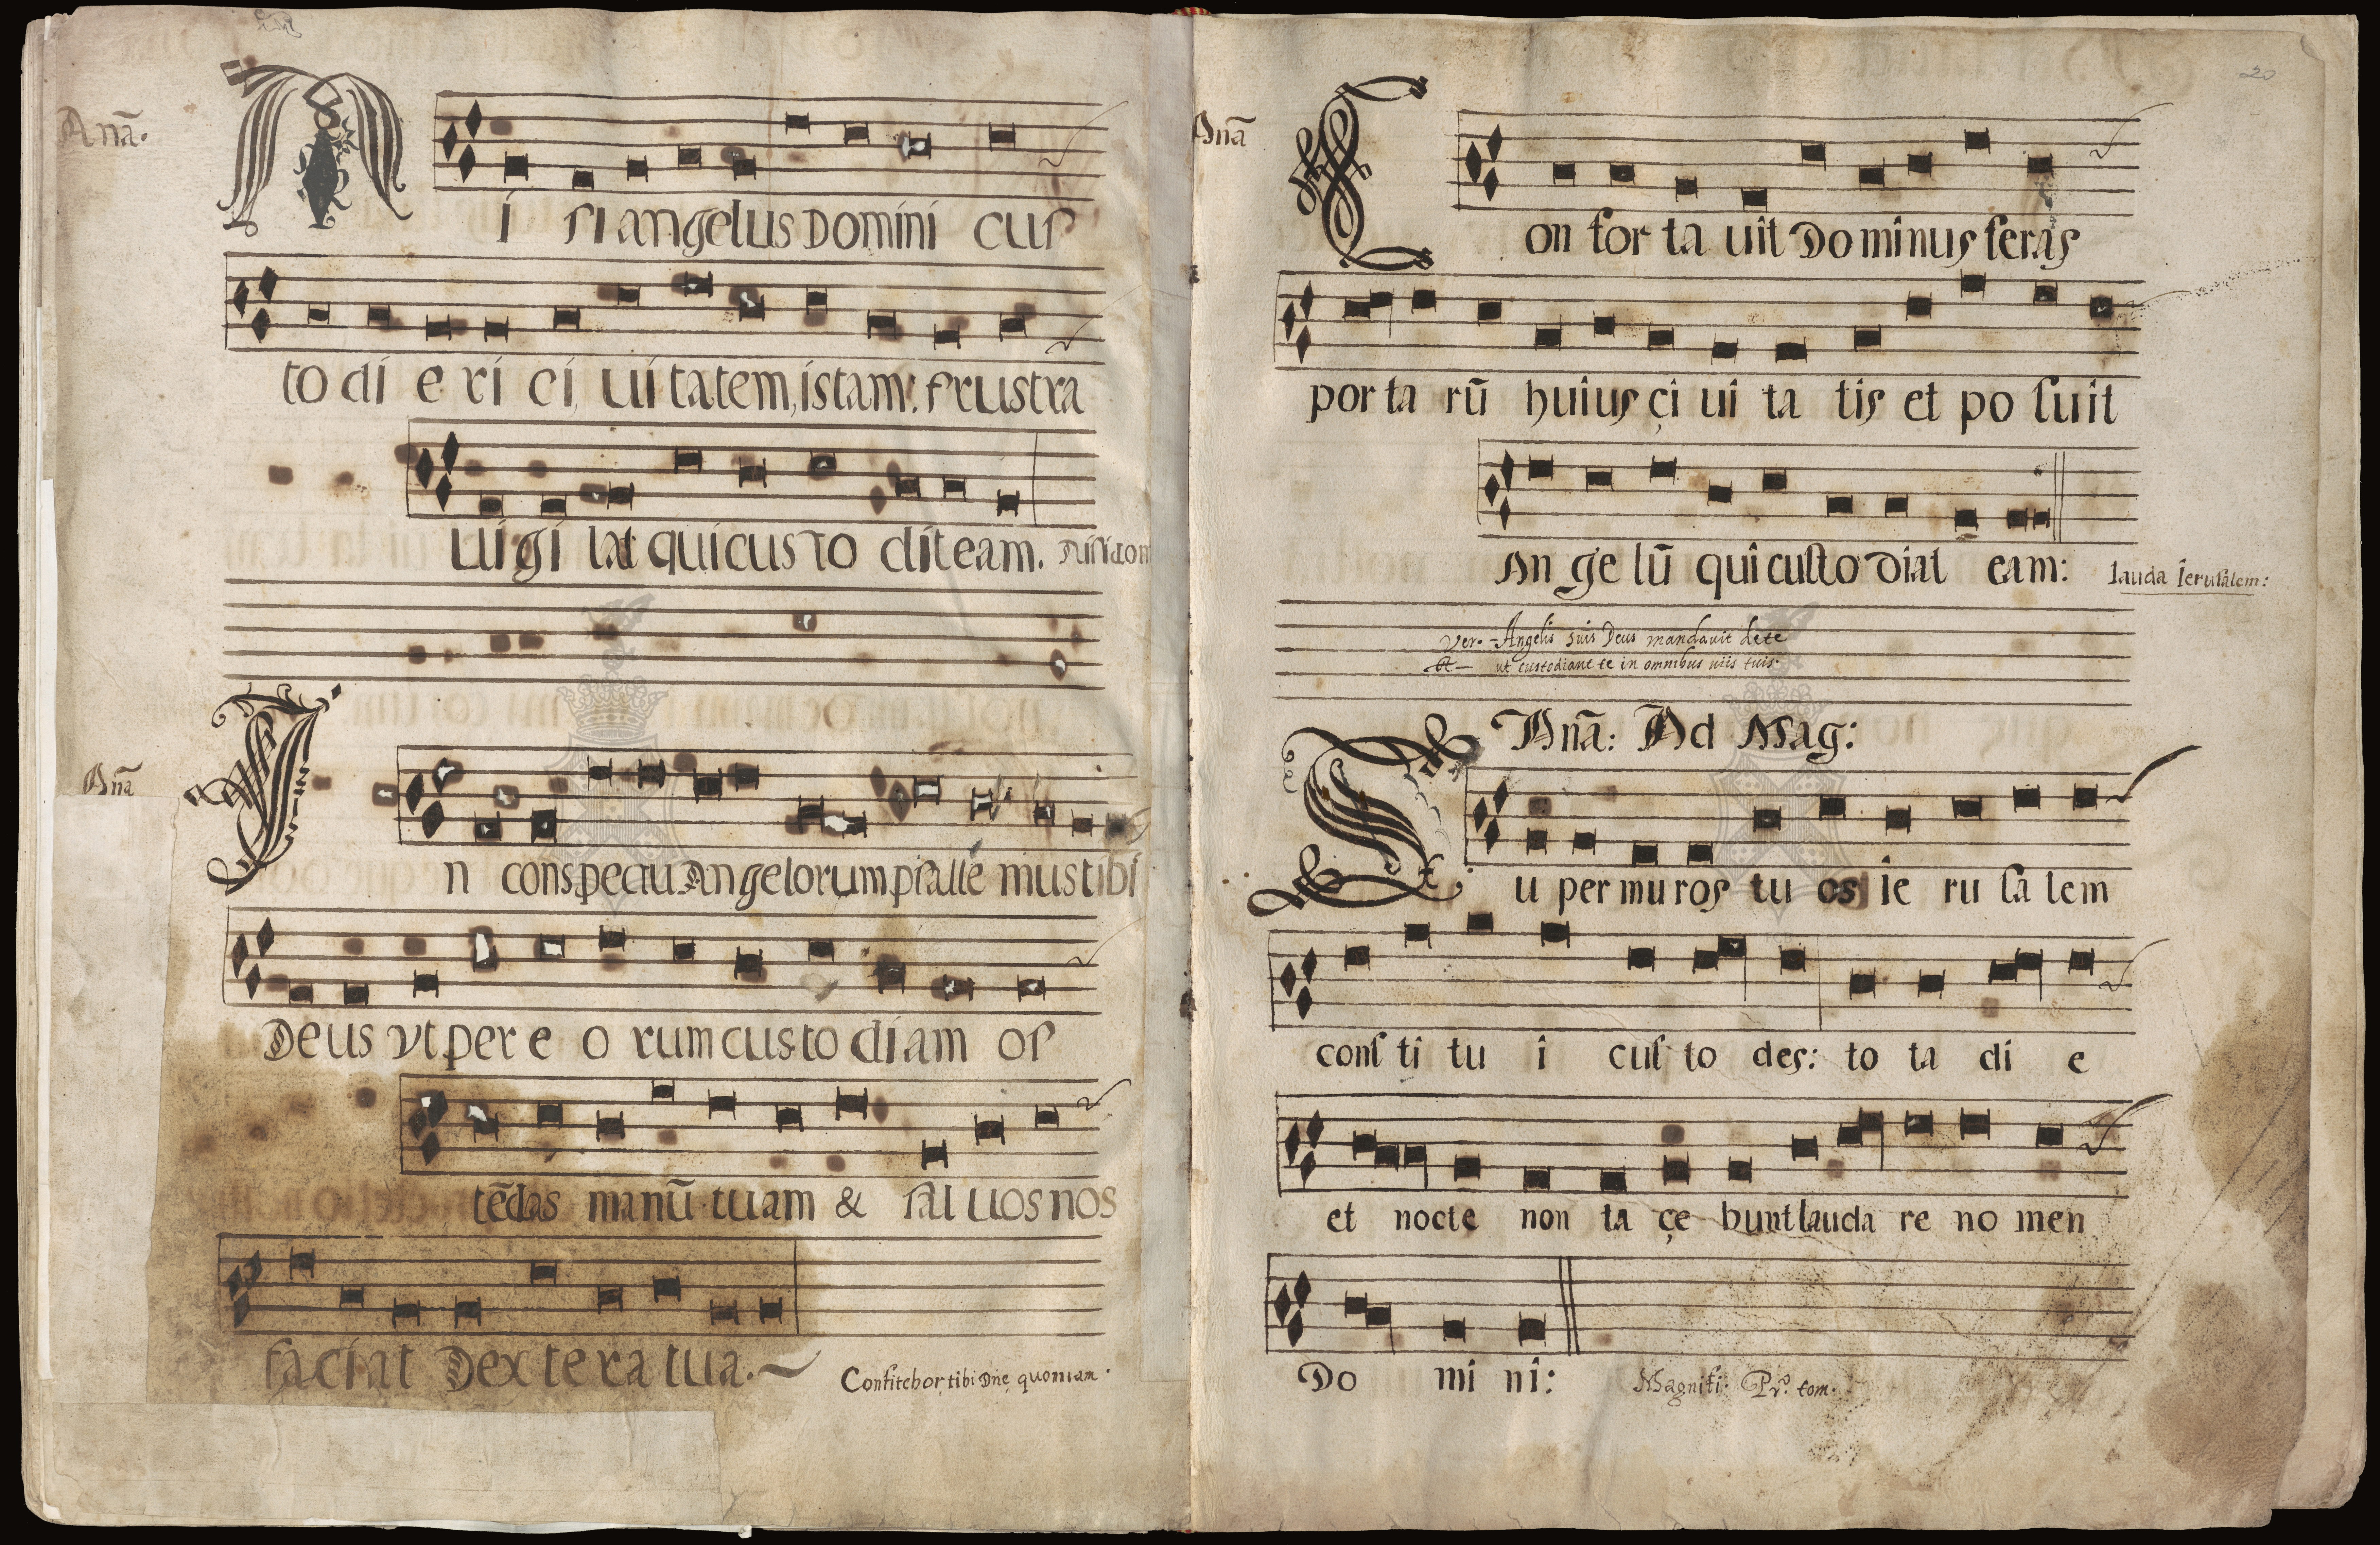 Anã.
Ni si angelus Domini cus
to di e ri ci ui ta tem, istam: frustra
uigi lat qui cus to dit eam. Nisi dom
Anã
In conspectu Angelorum psalle mus tibi
Deus vt per e o rum cus to diam os
tẽdas manũ tuam & sal uos nos
faciat Dex te ra tua.
Confitebor, tibi Dnẽ quoniam.
20
Anã
Con for ta uit Do minus seras
por ta rũ huius çi ui ta tis et po suit
An ge lũ qui custo diat eam: lauda Ierusalem:
Ver.- Angelis suis Deus mandauit dete
ut custodiant te in omnibus uiis tuis.
Anã: Ad Mag:
Su per mu ros tu os ie ru sa lem
cons ti tu i cus to des: to ta di e
et nocte non ta çe bunt lauda re no men
Do mi ni: Magnifi. Pro. tom.